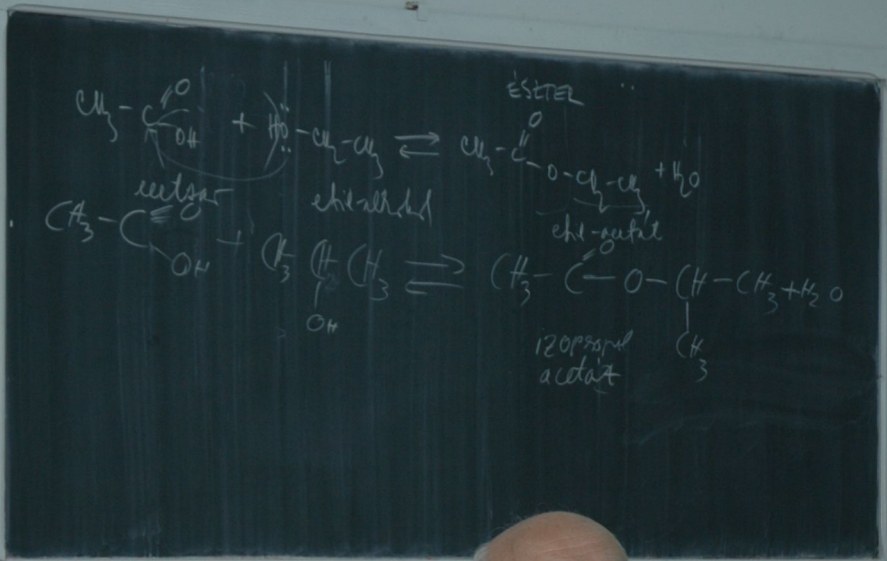 ÉSZTER
CH₃-C(=O)OH + HO-CH₂-CH₃ ⇌ CH₃-C(=O)-O-CH₂-CH₃ + H₂O
ecetsav etil-alkohol etil-acetát
CH₃-C(=O)OH + CH₃ CH(OH) CH₃ ⇌ CH₃-C(=O)-O-CH(CH₃)-CH₃ + H₂O
izopropil
acetát